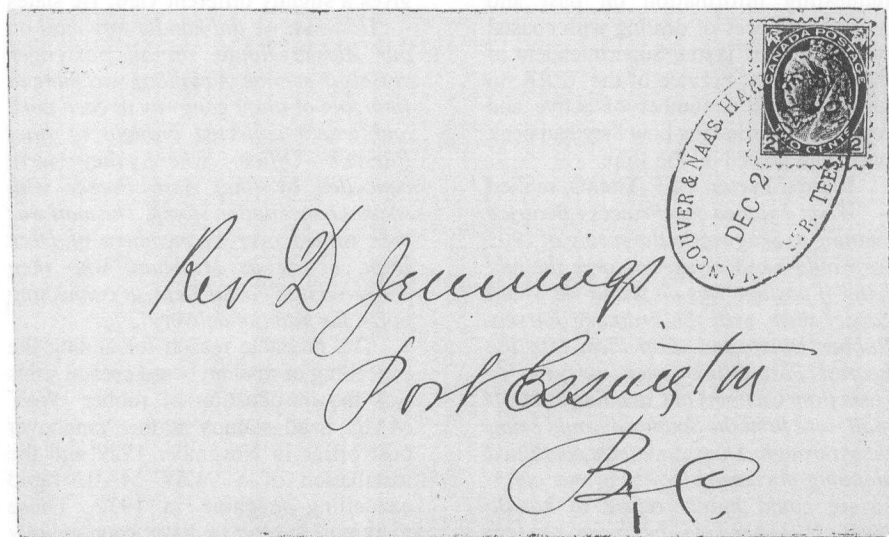 CANADA POSTAGE
2 TWO CENTS 2
VANCOUVER & NAAS. HAR
DEC 2
STR. TEES
Rev D Jennings
Port Essington
B.C.